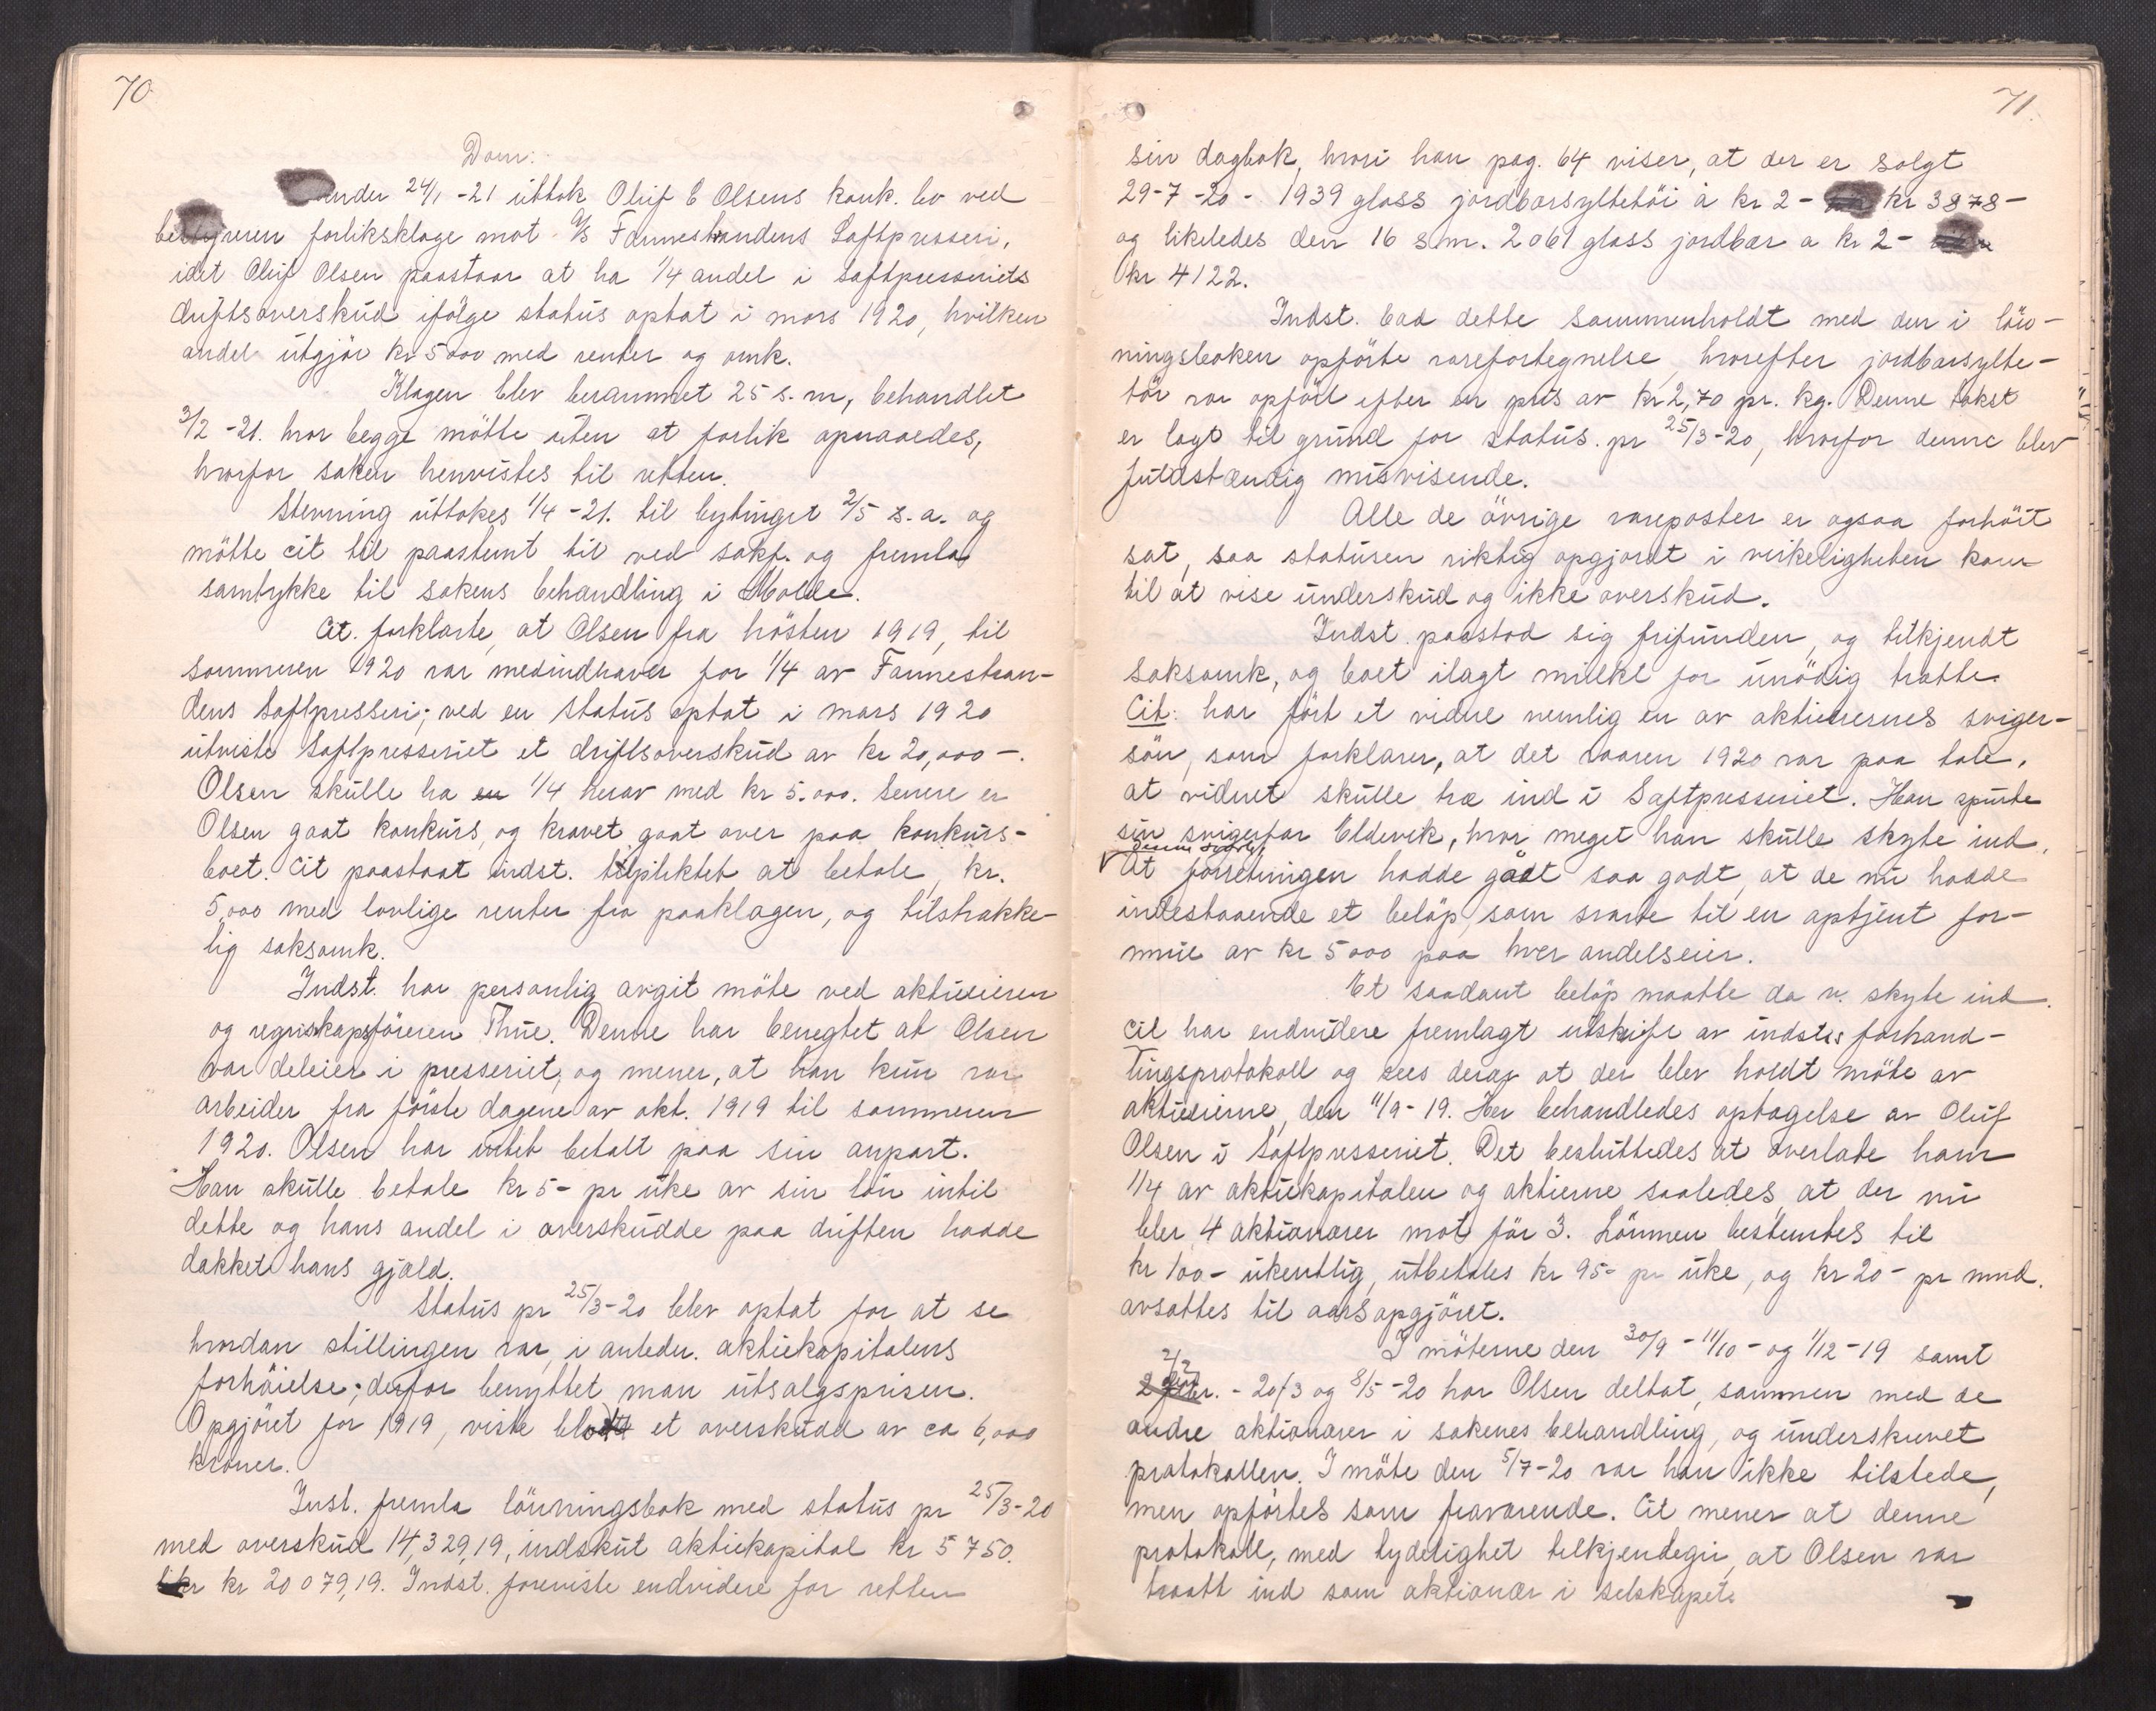 70
Dom:
under 24/1 -21 uttok Oluf E Olsens konk. bo ved
bestyreren forliksklage mot A/S Fannestrandens Saftpresseri,
idet Oluf Olsen paastaar at ha 1/4 andel i saftpresseriets
driftsoverskud ifölge status optat i mars 1920, hvilken
andel utgjör kr 5000 med renter og omk.
Klagen blev berammet 25 s.m, behandlet
3/2 -21. hvor begge mötte uten at forlik opnaaedes,
hvorfor saken henvistes til retten.
Stevning uttokes 1/4 -21. til bytinget 2/5 s.a. og
mötte cit til paastemt tid ved sakf. og fremla
samtykke til sakens behandling i Molde.
Cit. forklarte, at Olsen fra hösten 1919, til
sommeren 1920 var medindhaver for 1/4 av Fannestran-
dens Saftpresseri; ved en status optat i mars 1920
utviste Saftpresseriet et driftsoverskud av kr 20,000 -.
Olsen skulle ha en 1/4 herav med kr 5.000. Senere er
Olsen gaat konkurs, og kravet gaat over paa konkurs-
boet. Cit paastaat indst. tilpliktet at betale, kr.
5,000 med lovlige renter fra paaklagen, og tilstrække-
lig saksomk.
Indst. har personlig avgit möte ved aktieeieren
og regnskapsföreren Thue. Denne har benegtet at Olsen
var deleier i presseriet, og mener, at han kun var
arbeider fra förste dagene av okt. 1919 til sommeren
1920. Olsen har intet betalt paa sin anpart.
Han skulle betale kr 5- pr uke av sin lön intil
dette og hans andel i overskudde paa driften hadde
dækket hans gjæld.
Status pr 25/3-20 blev optat for at se
hvordan stillingen var, i anledn. aktiekapitalens
forhöielse; derfor benyttet man utsalgsprisen.
Opgjöret for 1919, viste blott et overskudd av ca 6,000
kroner.
Inst. fremla lönningsbok med status pr 25/3-20
med overskud 14,329,19, indskut aktiekapital kr 5750.
kr 20079,19. Indst. foreviste endvidere for retten
71.
sin dagbok, hvori han pag. 64 viser, at der er solgt
29-7-20 - 1939 glass jordbærsyltetöi à kr 2 - kr 3878 -
og likeledes den 16 s.m. 2061 glass jordbær a kr 2 -
kr 4122.
Indst. bad dette sammenholdt med den i lön-
ningsboken opförte varefortegnelse, hvorefter jordbærsylte-
töi var opfört efter en pris av kr 2,70 pr. kg. Denne takst
er lagt til grund for status. pr 25/3-20, hvorfor denne blev
fuldstændig misvisende.
Alle de övrige vareposter er ogsaa forhöit
sat, saa statusen riktig opgjordt i virkeligheten kom
til at vise underskud og ikke overskud.
Indst. paastod sig frifunden, og tilkjendt
saksomk, og boet ilagt mulkt for unödig trætte.
Cit: har fört et vidne nemlig en av aktieeiernes sviger-
sön, som forklarer, at det vaaren 1920 var paa tale,
at vidnet skulle træ ind i Saftpresseriet. Han spurte
sin svigerfar Eldevik, hvor meget han skulle skyte ind.
denne svarte
At forretningen hadde gådt saa godt, at de nu hadde
indestaaende et belöp, som svarte til en optjent for-
mue av kr 5000 paa hver andelseier.
Et saadant belöp maatte da v. skyte ind.
Cit har endvidere fremlagt utskrift av indst:s forhand-
lingsprotokoll og sees derav at der blev holdt möte av
aktieeierne, den 11/9 - 19. Her behandledes optagelse av Oluf
Olsen i Saftpresseriet. Det besluttedes at overlate ham
1/4 av aktiekapitalen og aktierne saaledes, at der nu
blev 4 aktionærer mot för 3. Lönnen bestemtes til
kr 100 - ukentlig, utbetales kr 95- pr uke, og kr 20 - pr mnd.
avsattes til aarsopgjöret.
I möterne den 30/9 - 11/10 - og 1/12 -19 samt
2/2
- 20/3 og 8/5 -20 har Olsen deltat, sammen med de
andre aktionærer i sakenes behandling, og underskrevet
protokollen. I möte den 5/7-20 var han ikke tilstede,
men opförtes som fraværende. Cit mener at denne
protokoll, med tydelighet tilkjendegir, at Olsen var
traatt ind som aktionær i selskapet.